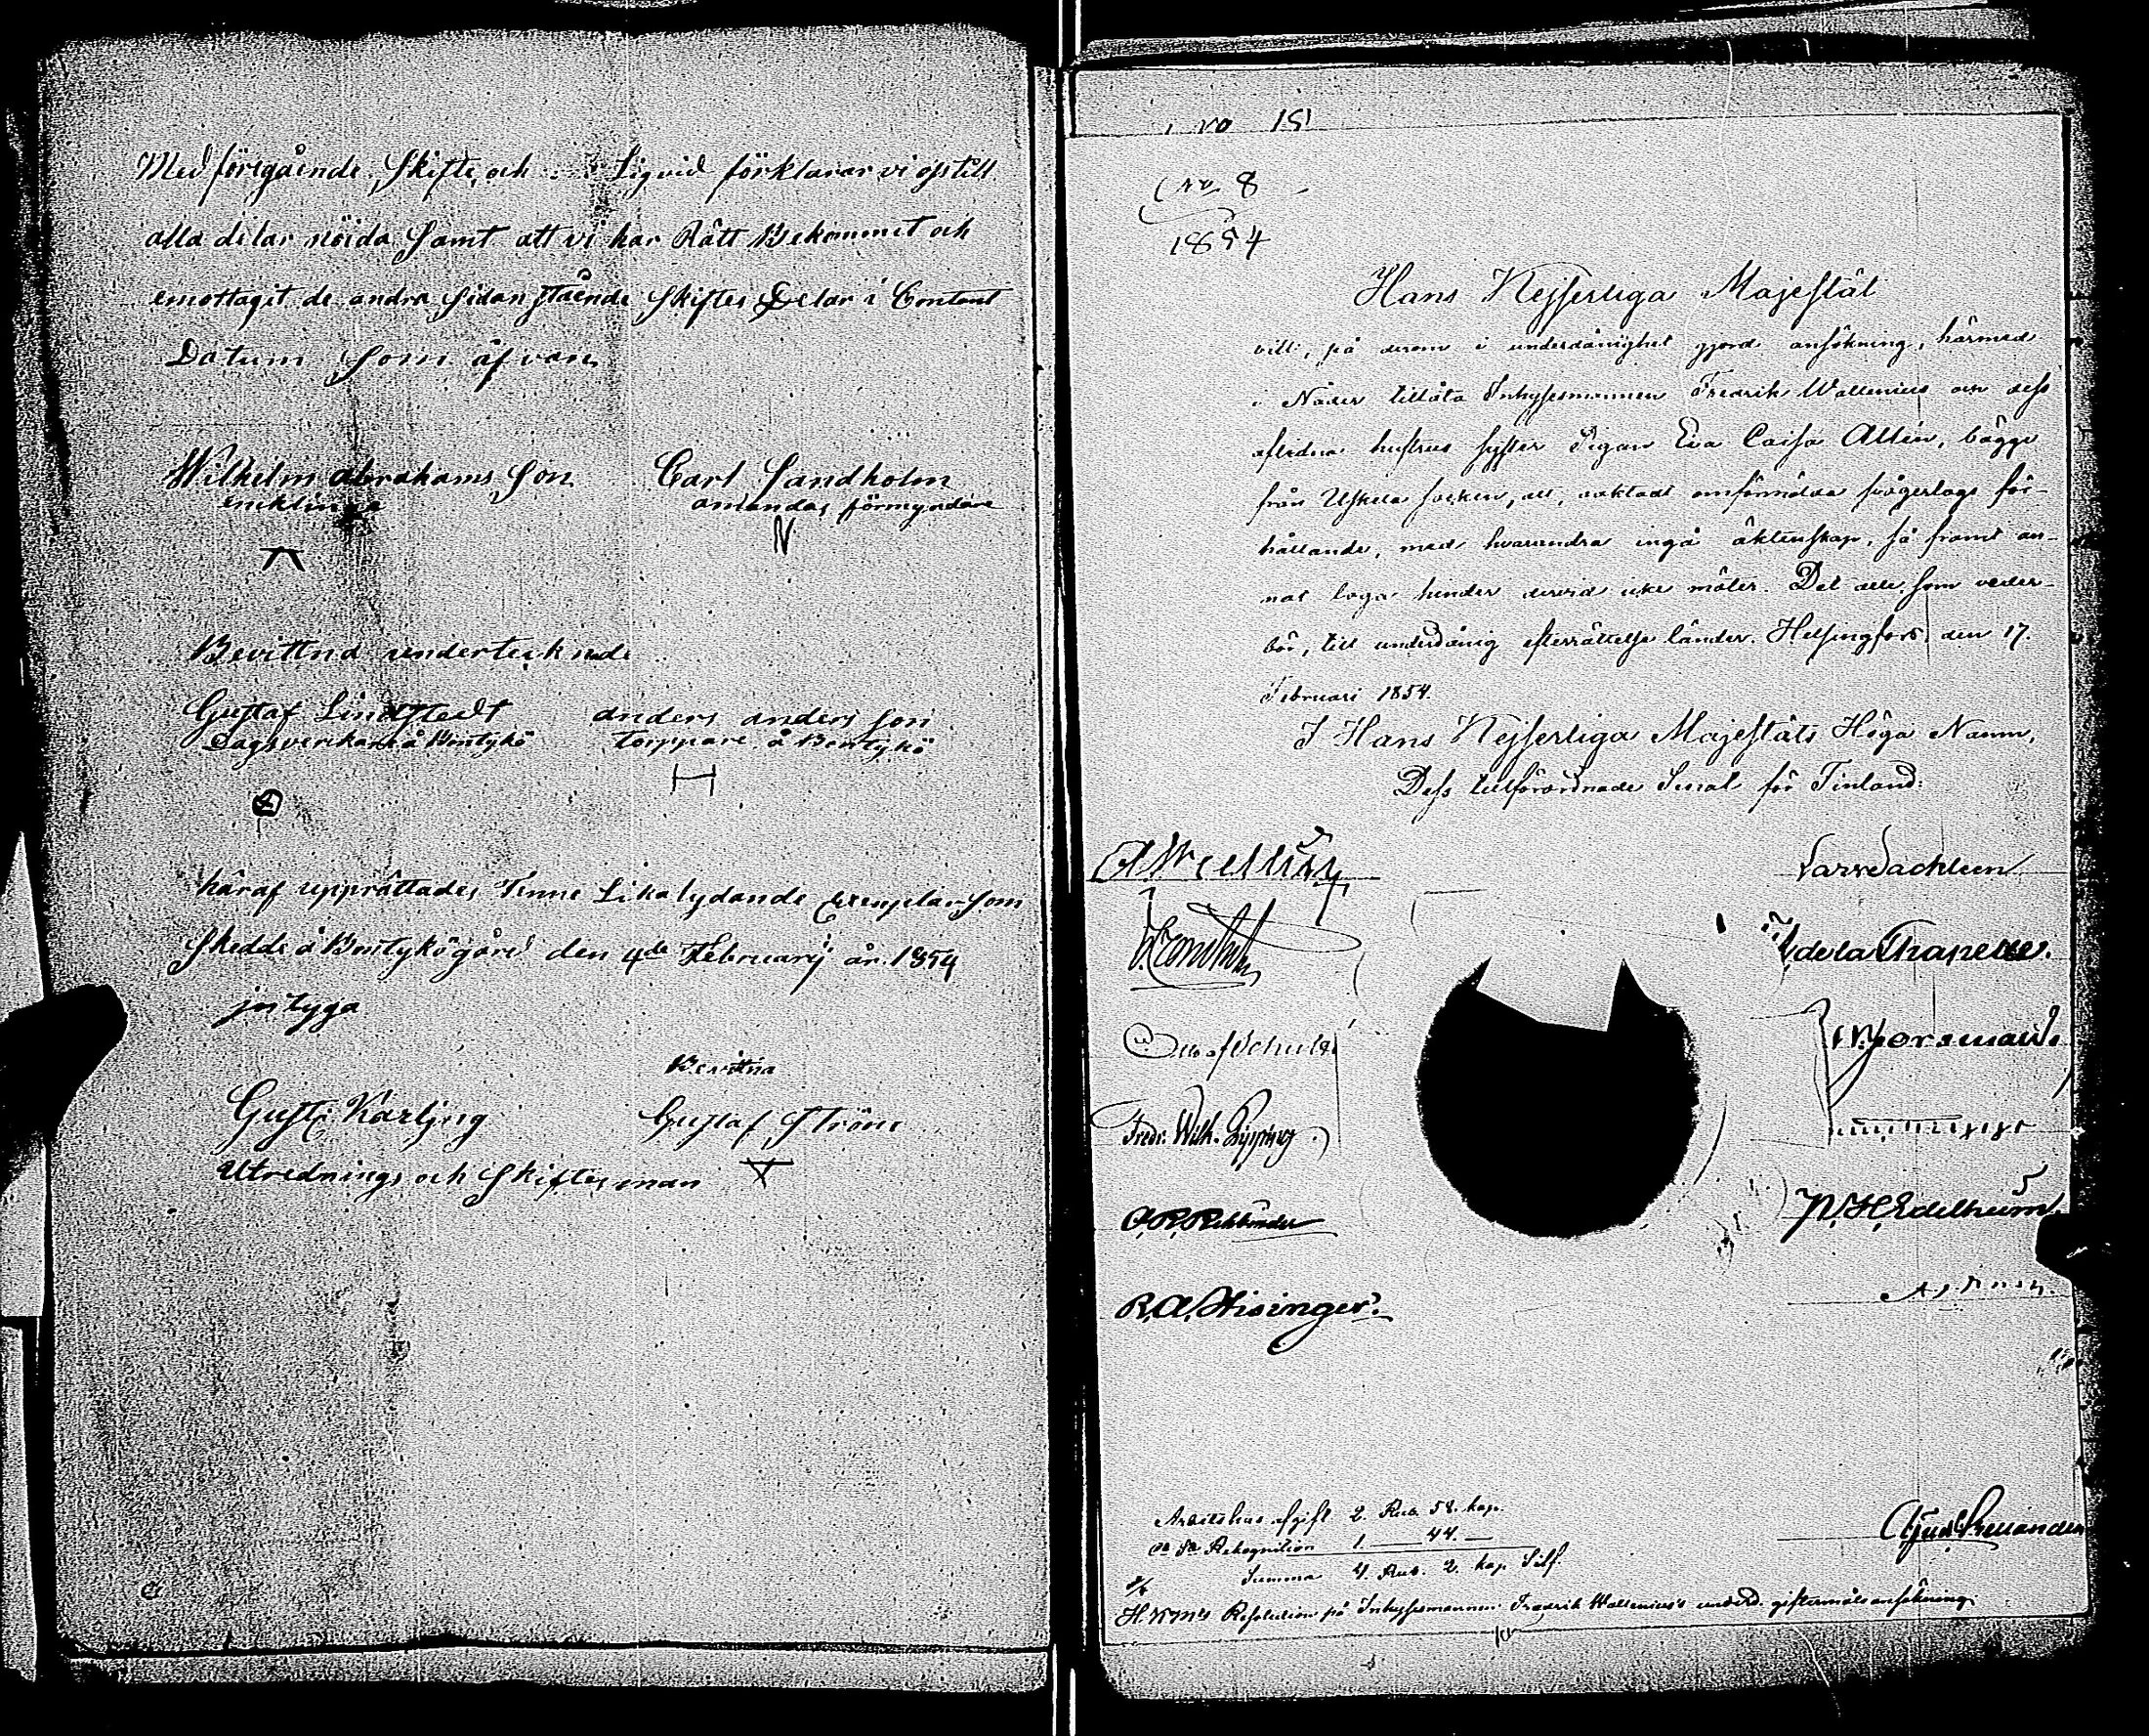 Med föregående Skifte och Liqvid förklarar vi oss till
alla delar nöida Samt att vi har Rätt Bekommet och
emottagit de andra Sidan stående Skiftes Delar i Contant
Datum Som åfvan
Wilhelm abrahams Son
enklinge
Carl Sandholm
amandas förmyndare
Bevittna undertecknade
Gustaf Lindstedt
Dagsverkare å Bentykö
anders anders son
torppare å Bentykö
häraf upprättades Tenne Lika lydande Exemplar Som
Skedde å Bentykö gård den 4de Februarij år 1854
intyga
Bevittna
Gusta Karling
Gustaf Ström
Utrednings och Skiftes man
No 8
1854
Hans Kejserliga Majestät
vill, på derom i underdånighet gjord ansökning, härmed
i Nåder tillåta Inhysesmannen Fredrik Wallenius och dess
aflidna hustrus syster Pigan Eva Caisa Allén, bägge
från Uskela socken, att, oaktadt omförmälda svågerlags för-
hållande, med hvarandra ingå äktenskap, så framt an-
nat laga hinder dervid icke möter. Det alle, som veder-
bör, till underdånig efterrättelse länder. Helsingfors, den 17.
Februari 1854.
I Hans Kejserliga Majestäts Höga Namn,
Dess tillförordnade Senat för Finland:
Lars Sackleen
de la Chapelle.
Fredr. Wilh. Pipping
O. R. Rehbinder
P. H. Edelheim
R. A. Hisinger.
Arbetshus afgift 2. Rub. 58. kop.
Rekognition 1. — 44. —
Summa 4. Rub. 2. kop. Silf.
H. K. M:ts Resolution på Inhysesmannen Fredrik Wallenius's underd. giftermåls ansökning.